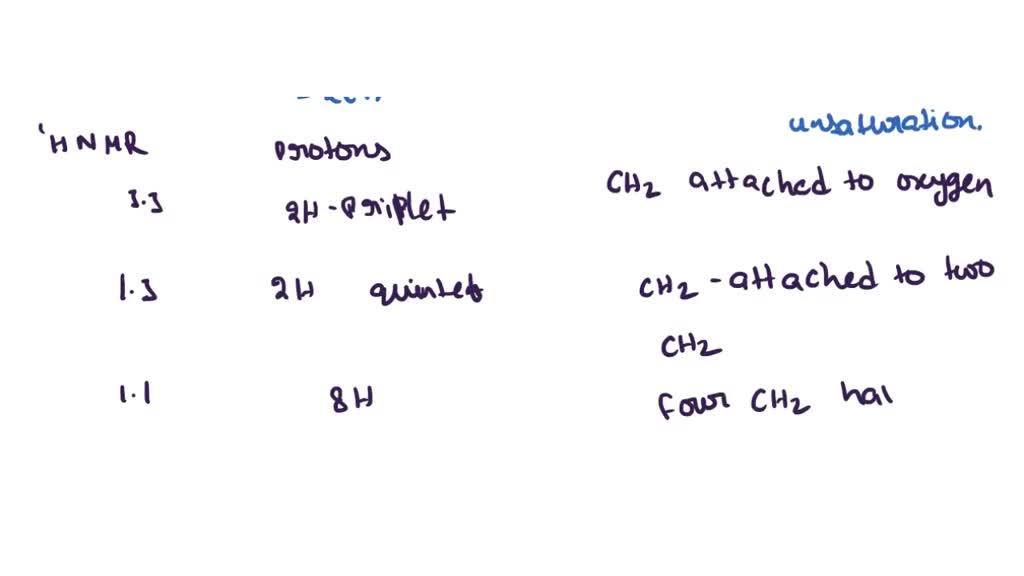 unsaturation.
'HNMR protons
3.3 2H - priplet CH2 attached to oxygen
1.3 2H quintet CH2 - attached to two
CH2
1.1 8H four CH2 hav